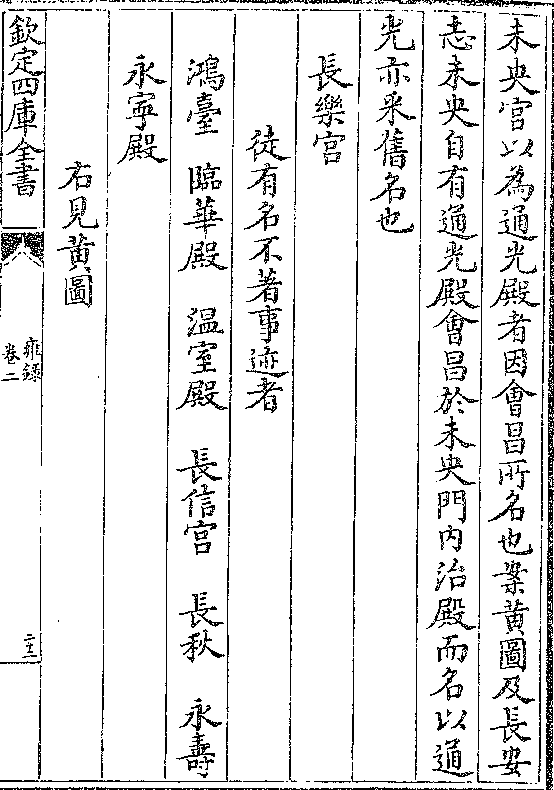 未央宫以為通光殿者因㑹昌所名也案黄圖及長安
志未央自有通光殿㑹昌於未央門内治殿而名以通
光亦采舊名也
長樂宫
徒有名不著事迹者
鴻臺 臨華殿 温室殿 長信宫 長秋 永壽
永寧殿
右見黄圖
欽定四庫全書
雍録
卷二
二十三